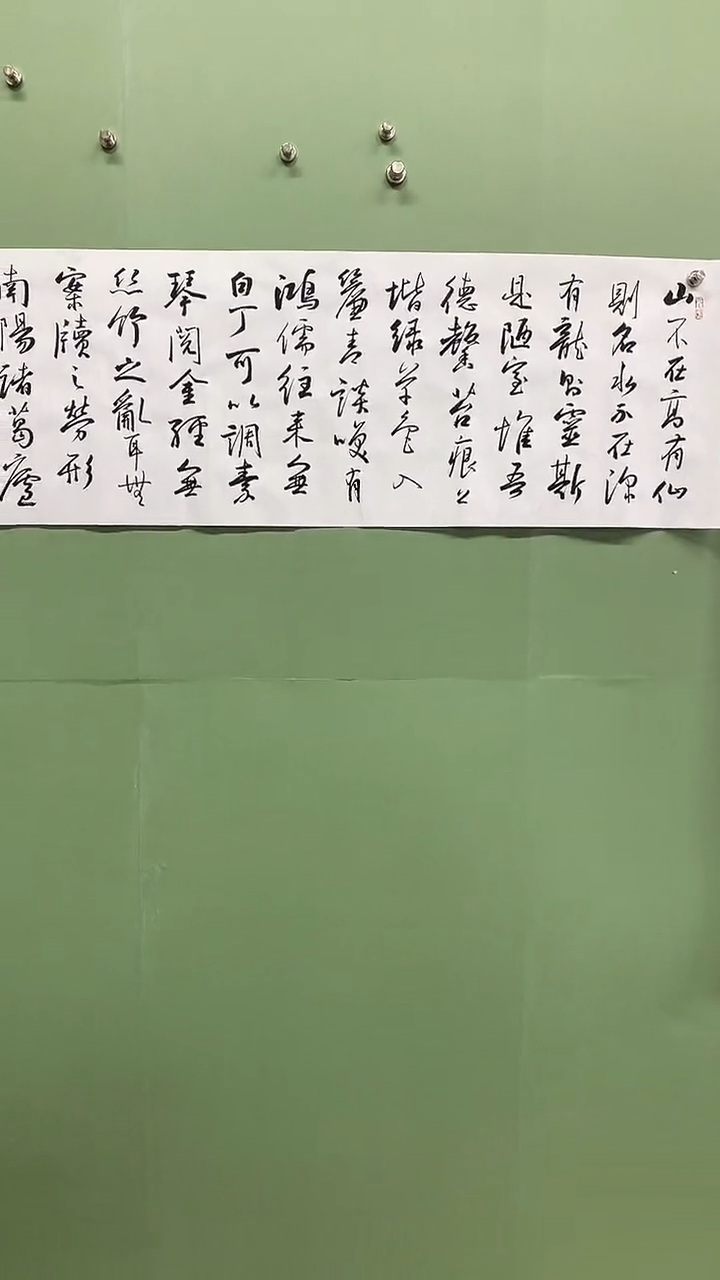 山不在高有仙
則名水不在深
有龍則靈斯
是陋室惟吾
德馨苔痕上
堦綠草色入
簾青談笑有
鴻儒往來無
白丁可以調素
琴閱金經無
絲竹之亂耳無
案牘之勞形
南陽諸葛廬